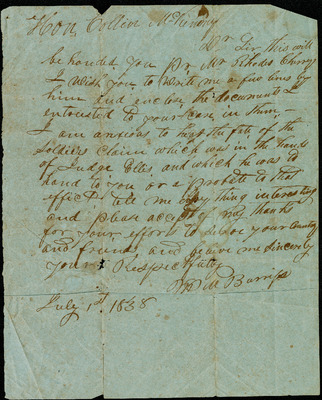 Hon Collin McKinney
Dr Sir this will
be handed you pr Mr Rhods Cherry
I Wish you to write me a few lines by
him and enclose the documents I
entrusted to your care in them
I am anxious to hear the fate of the
Soldiers Claim which was in the hands
of Judge Ellis, and which he was to
hand to you or a probate to that
effect tell me every thing interesting
and please accept my thanks
for your efforts to serve your County
and friends and believe me sincerely
yours Respectfully
Will Burriss
July 1st 1838